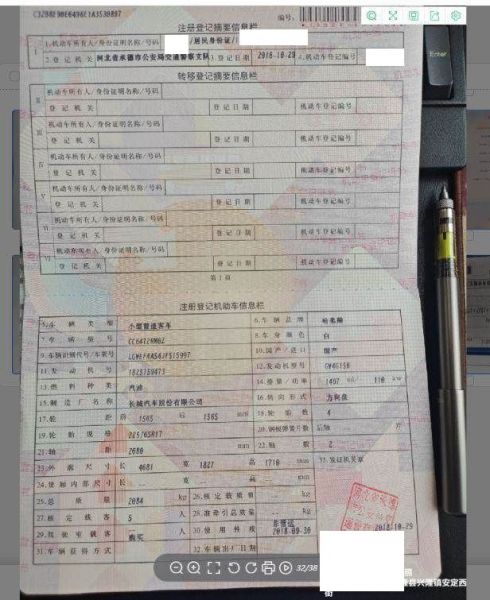 注册登记摘要信息栏
编号:
I
1.机动车所有人/身份证明名称/号码
/居民身份证/
2.登记机关
河北省承德市公安局交通警察支队
3.登记日期
2018-10-29
4.机动车登记编号
转移登记摘要信息栏
II
机动车所有人/身份证明名称/号码
登记机关
登记日期
机动车登记编号
III
机动车所有人/身份证明名称/号码
登记机关
登记日期
机动车登记编号
IV
机动车所有人/身份证明名称/号码
登记机关
登记日期
机动车登记编号
V
机动车所有人/身份证明名称/号码
登记机关
登记日期
机动车登记编号
VI
机动车所有人/身份证明名称/号码
登记机关
登记日期
机动车登记编号
VII
机动车所有人/身份证明名称/号码
登记机关
登记日期
机动车登记编号
第1页
注册登记机动车信息栏
5.车辆类型
小型普通客车
6.车辆品牌
7.车辆型号
8.车身颜色
白
9.车辆识别代号/车架号
10.国产/进口
国产
11.发动机号
12.发动机型号
13.燃料种类
汽油
14.排量/功率
1497
ml
110
kw
15.制造厂名称
长城汽车股份有限公司
16.转向形式
方向盘
17.轮距
前
1565
后
1565
mm
18.轮胎数
4
19.轮胎规格
20.钢板弹簧片数
后轴
片
21.轴距
2680
mm
22.轴数
2
23.外廓尺寸
长
宽
高
1710
mm
33.发证机关章
24.货厢内部尺寸
长
宽
高
mm
25.总质量
2084
kg
26.核定载质量
kg
27.核定载客
5
人
28.准牵引总质量
kg
29.驾驶室载客
人
30.使用性质
非营运
31.车辆获得方式
购买
32.车辆出厂日期
2018-09-30
2018-10-29
32/38
县兴隆镇安定西
街